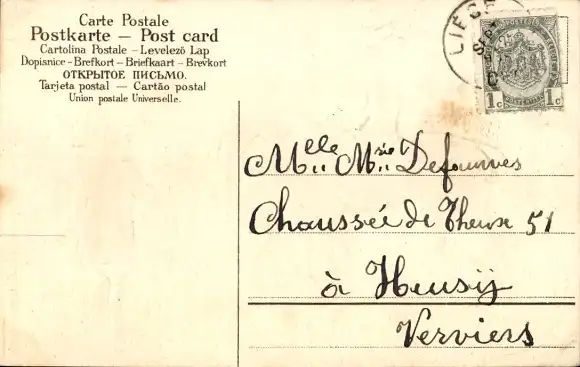 Carte Postale
Postkarte — Post card
Cartolina Postale - Levelező Lap
Dopisnice - Brefkort - Briefkaart - Brevkort
ОТКРЫТОЕ ПИСЬМО.
Tarjeta postal — Cartão postal
Union postale Universelle.
LIÉGE
SEPT
1c 1c
Melle Mrie Defourves
Chaussée de Theux 51
à Heusy
Verviers